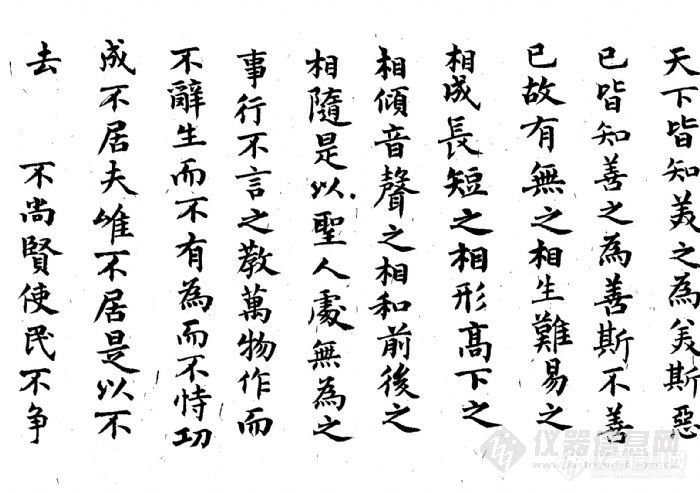 天下皆知美之為美斯惡
已皆知善之為善斯不善
已故有無之相生難易之
相成長短之相形高下之
相傾音聲之相和前後之
相隨是以聖人處無為之
事行不言之教萬物作而
不辭生而不有為而不恃功
成不居夫唯不居是以不
去 不尚賢使民不争
仪器信息网